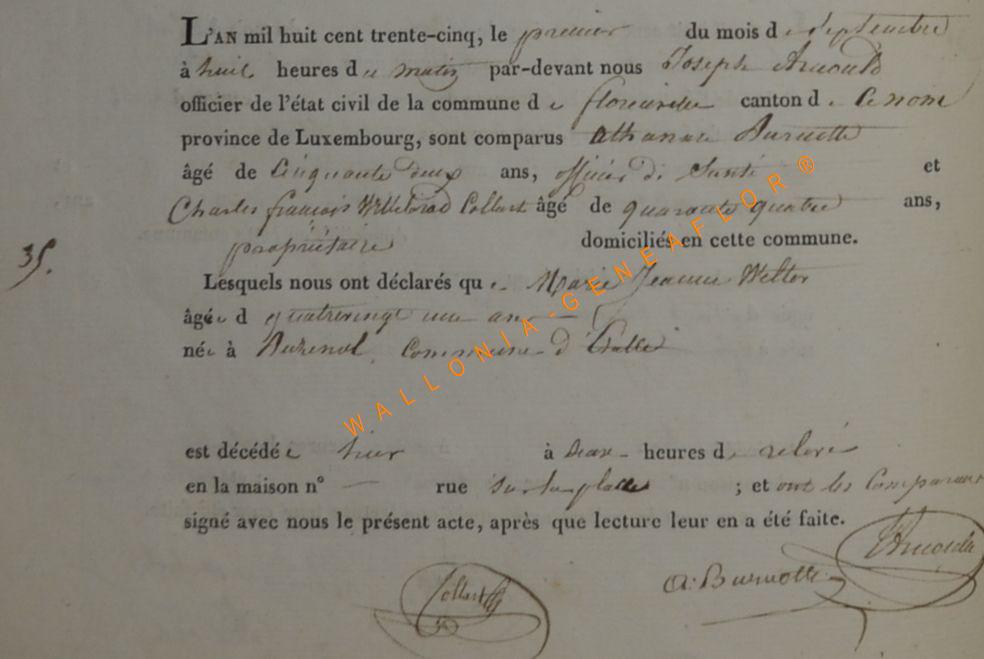 L'AN mil huit cent trente-cinq, le premier du mois de septembre
à huit heures du matin par-devant nous Joseph Arnould
officier de l'état civil de la commune de florenville canton de ce nom
province de Luxembourg, sont comparus athanase Burnotte
âgé de Cinquante deux ans, officier de Santé et
Charles françois Willebrod Collart âgé de quarante quatre ans,
35. propriétaire domiciliés en cette commune.
Lesquels nous ont déclarés que Marie Jeanne Welter
âgée d quatrevingt un ans
née à Buzenol Commune d'Etalle
est décédée hier à deux heures de relevé
en la maison n° — rue sur la place ; et ont les Comparants
signé avec nous le présent acte, après que lecture leur en a été faite.
Arnould
a. Burnotte
Collart
WALLONIA-GENEAFLOR ®